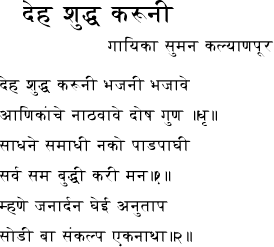 देह शुद्ध करूनी
गायिका सुमन कल्याणपूर
देह शुद्ध करूनी भजनी भजावे
आणिकांचे नाठवावे दोष गुण ॥धृ॥
साधने समाधी नको पाडपाघी
सर्व सम बुद्धी करी मन॥१॥
म्हणे जनार्दन घेई अनुताप
सोडी बा संकल्प एकनाथा॥२॥